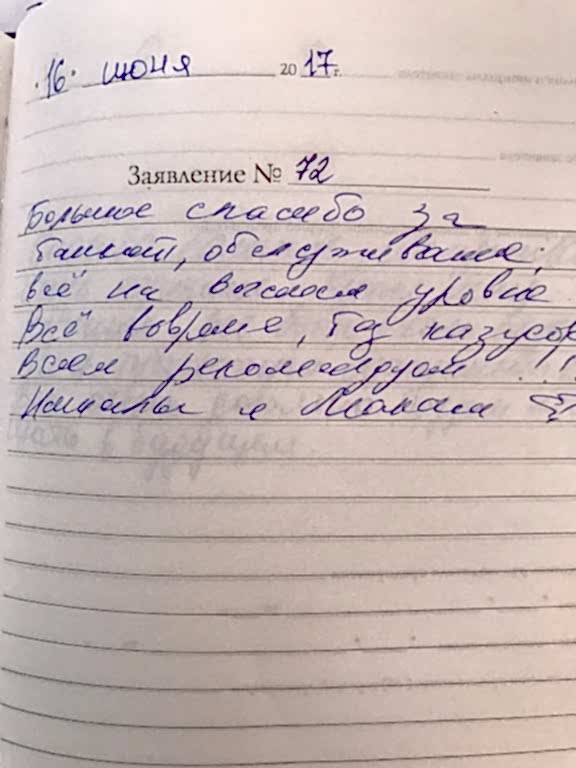 16 июня 2017 г.
Заявление № 72
Большое спасибо за
банкет, обслуживание,
всё на высшем уровне
Всё вовремя, без казусов
Всем рекомендуем !!!
и